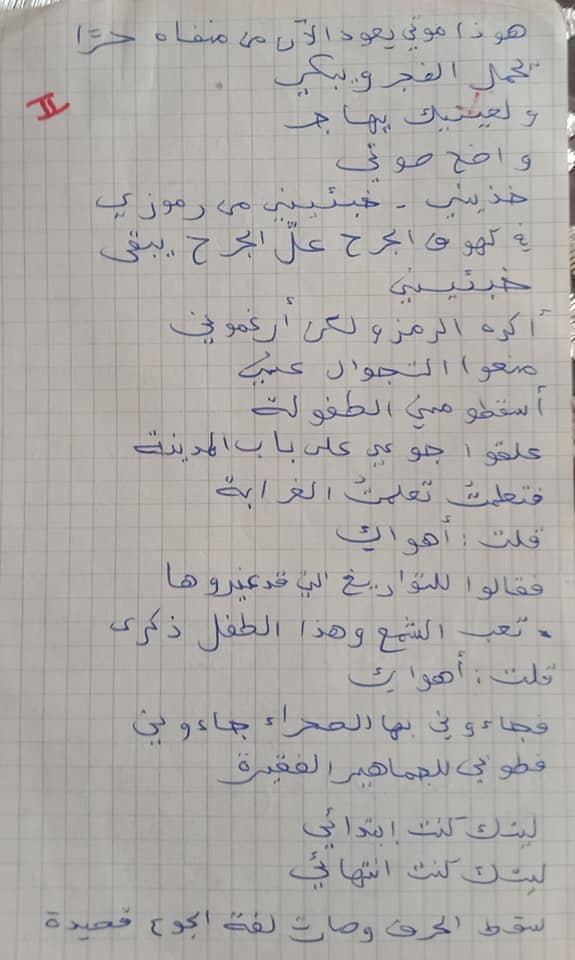 هوذا موتي يعود الآن من منفاه حرًا
تحمل الفجر ويبكي
II
ولعينيك يهاجر
واضح صوتي
خذيني - خبئيني من رموزي
في كهوف الجرح علّ الجرح يبقى
خبئيني
أكره الرمز ولكن أرغموني
منعوا التجوال عني
أسقطو مني الطفولة
علقوا جوعي على باب المدينة
فتعلمتُ تعلمتُ الغرابة
قلت : أهواك
فقالوا للتواريخ التي قد غيروها
تعب الشمع وهذا الطفل ذكرى
قلت : أهواك
فجاءوني بها الصحراء جاءوني
للجماهير الفقيرة
ليتك كنت إبتدائي
ليتك كنت انتهائي
سقط الحرف وصارت لغة الجوع قصيدة